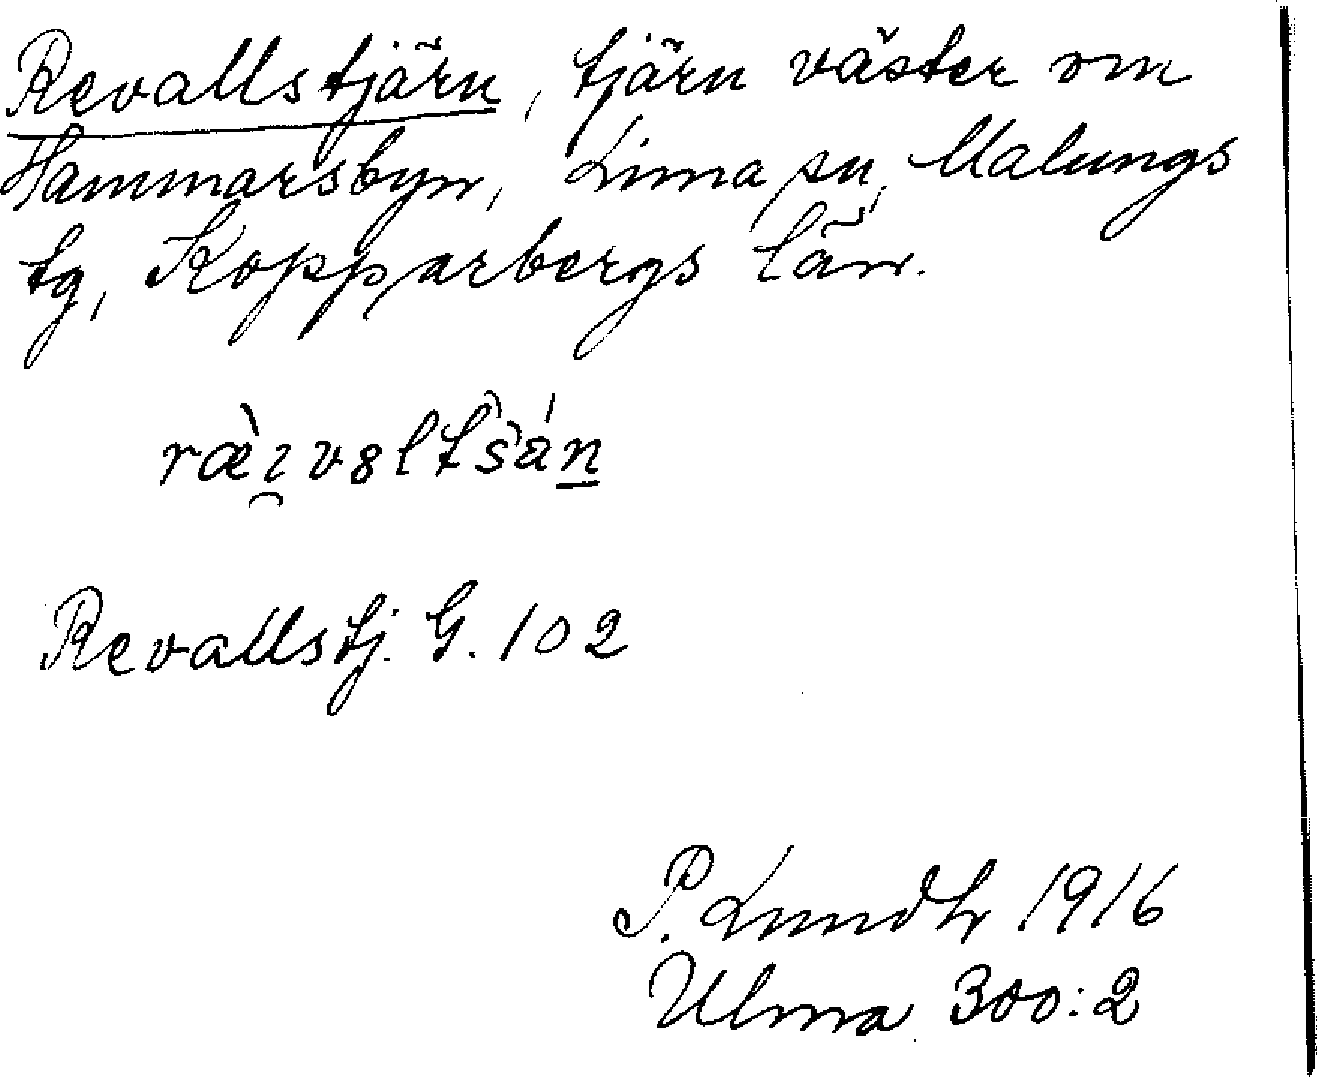 Revallstjärn, tjärn väster om
Hammarsbyn, Lima sn, Malungs
tg, Kopparbergs län.
ræ̀ı̯vo̤ltšán
Revallstj. G. 102
P. Lundh 1916
Ulma 300:2